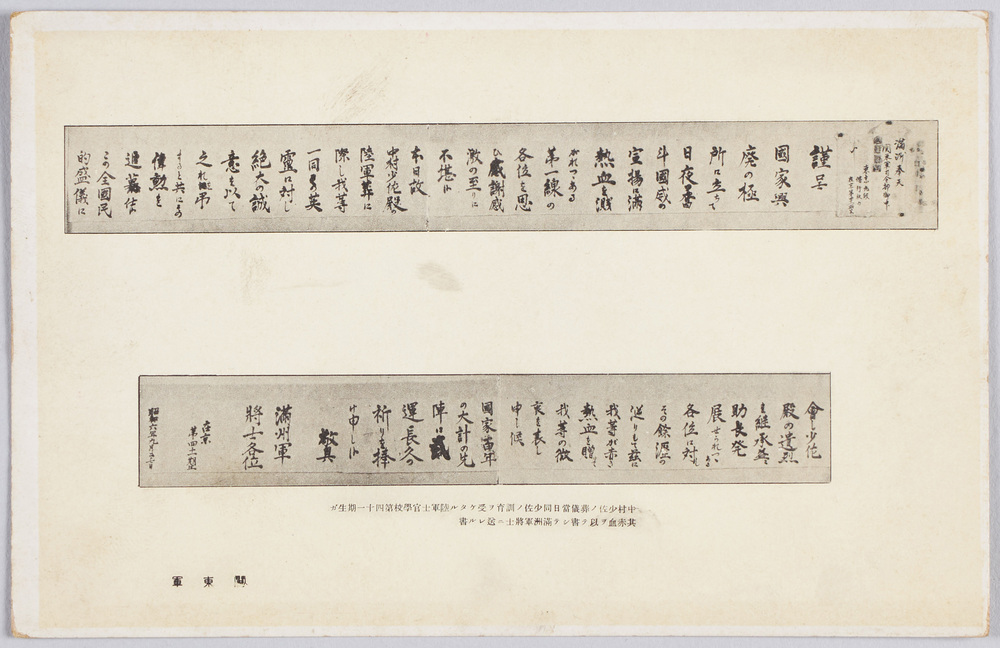 滿洲奉天
関東軍司令部御中
謹呈
國家興
廃の極
所に立ちて
日夜奮
斗國威の
宣揚に滿
熱血を濺
がれつゝある
第一線の
各位を思
ひ感謝感
激の至りに
不堪候
本日故
中村少佐殿の
陸軍葬に
際し我等
一同その英
霊に対し
絶大の誠
意を以て
之れ
すると共にその
偉勲を
追慕仕候
この全國民
的盛儀に
會し少佐
殿の遺烈
を継承益々
助長発
展せられつゝ
ある
各位に対し
その餘瀝の
迸りもて茲に
我等が赤き
熱血を贈て
我等の微
衷を表し
申し候
國家百年
の大計の先
陣に武
運長久の
祈りを捧
げ申し候
敬具
滿州軍
將士各位
在京
第四十一期
中村少佐ノ葬儀當日同少佐ノ訓育ヲ受ケタル陸軍士官學校第四十一期生ガ
其赤血ヲ以テ書シテ滿洲軍將士ニ送レル書
關東軍